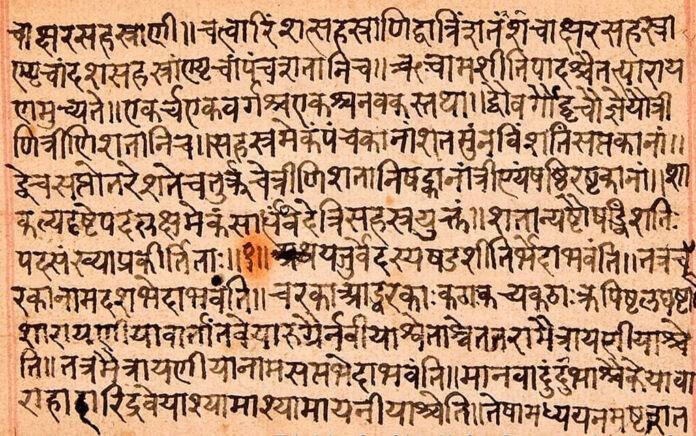 चाक्षरसहस्राणी॥चत्वारिंशत्सहस्राणिद्वात्रिंशतंशंचाक्षरसहस्रा
ण्यृचांदशसहस्रांण्यृचांपंचशतानिच॥ऋचामशीतिपादश्चैतत्पाराय
णमुच्यते॥एकर्चएकवर्गश्चएकश्चनवकस्तथा॥द्वौवर्गौद्वृचौज्ञेयौत्री
णित्रीणिशतानिच॥सहस्रमेकंपंचकानां विंशतिसप्तकानां॥
द्वेचसप्तोत्तरेशतेचतुर्कंचेत्रीणिशतानिषट्कानांत्रीण्यंषष्ठिरष्टकानां॥शा
कल्यदृष्टेपदलक्षमेकंसार्धंचवेदेत्रिसहस्रयुक्तं॥शतान्यष्टौषट्विंशतिः
पदसंख्याप्रकीर्तिताः॥१॥अथयजुर्वेदस्यषडशीतिर्भेदाभवंति॥तत्रच
रकानामदशभेदाभवंति॥चरकाआद्वरकाःकठाकच्यकठाःकपिष्टल
वार्तांतवेया मैत्रायणीयाश्चे
ति॥तत्रमैत्रायणीयानामसप्तभेदाभवंति॥मानवादुंदुभाश्चैकेयावा
राहाहारिद्रवेयाश्यामाश्यामायनीयाश्चेति॥तेषामध्ययनमष्ट